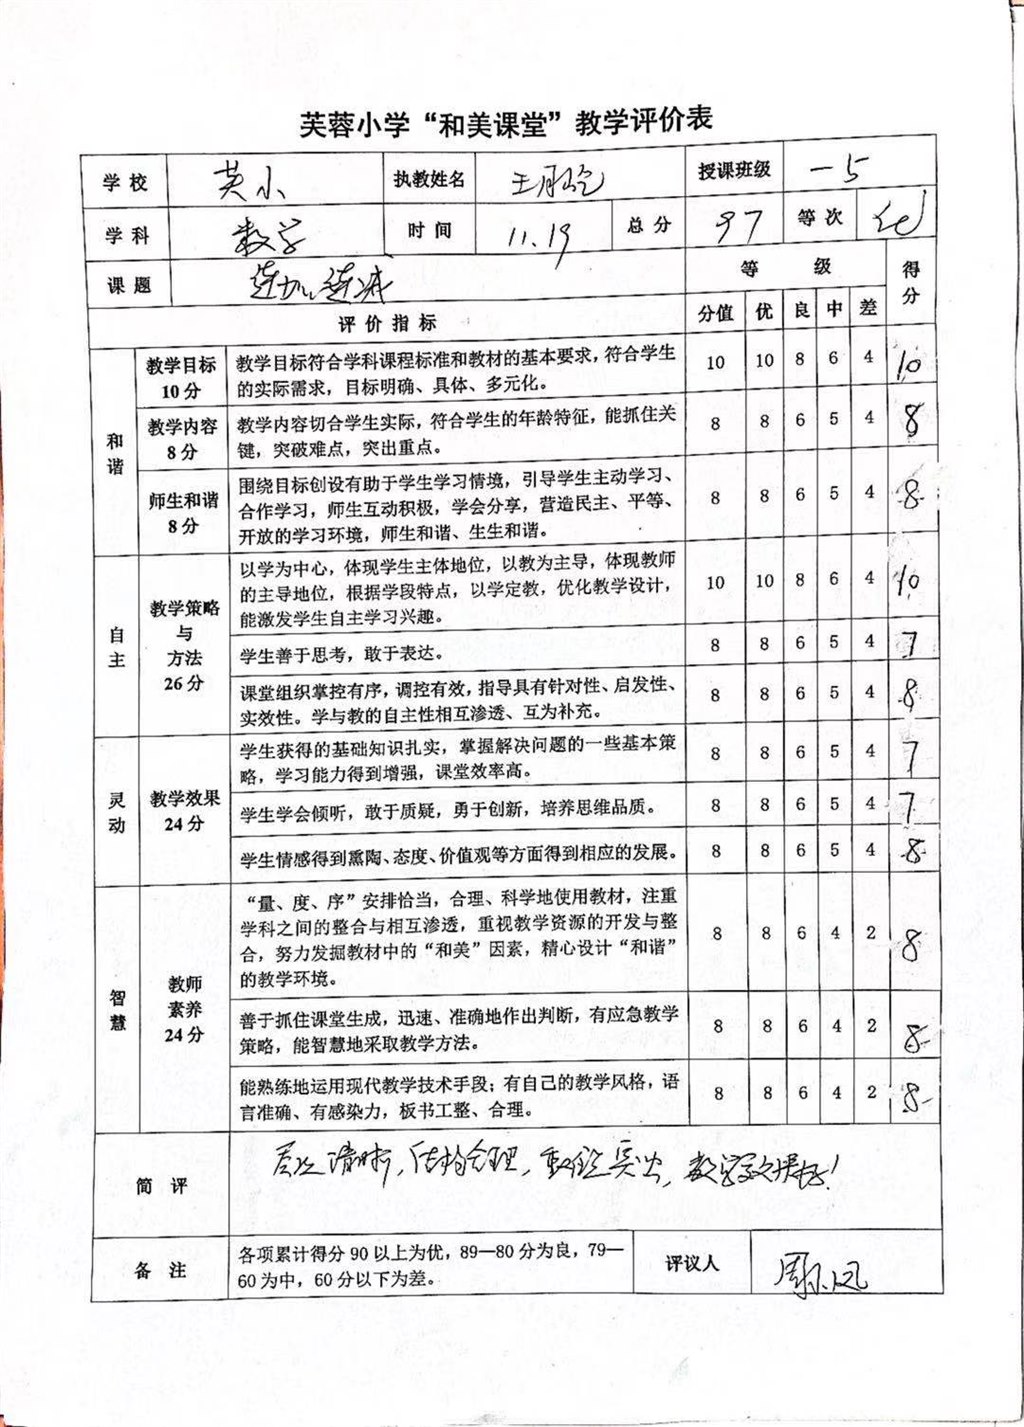 芙蓉小学“和美课堂”教学评价表
学校 芙小 执教姓名 王月 授课班级 一5
学科 数学 时间 11.19 总分 97 等次 优
课题 连加、连减 等级 得分
评价指标 分值 优 良 中 差
和谐 教学目标 10分 教学目标符合学科课程标准和教材的基本要求，符合学生 10 10 8 6 4 10
的实际需求，目标明确、具体、多元化。
教学内容 8分 教学内容切合学生实际，符合学生的年龄特征，能抓住关 8 8 6 5 4 8
键，突破难点，突出重点。
师生和谐 8分 围绕目标创设有助于学生学习情境，引导学生主动学习、
合作学习，师生互动积极，学会分享，营造民主、平等、 8 8 6 5 4 8
开放的学习环境，师生和谐、生生和谐。
自主 教学策略与方法 26分 以学为中心，体现学生主体地位，以教为主导，体现教师
的主导地位，根据学段特点，以学定教，优化教学设计， 10 10 8 6 4 10
能激发学生自主学习兴趣。
学生善于思考，敢于表达。 8 8 6 5 4 7
课堂组织掌控有序，调控有效，指导具有针对性、启发性、 8 8 6 5 4 8
实效性。学与教的自主性相互渗透、互为补充。
灵动 教学效果 24分 学生获得的基础知识扎实，掌握解决问题的一些基本策 8 8 6 5 4 7
略，学习能力得到增强，课堂效率高。
学生学会倾听，敢于质疑，勇于创新，培养思维品质。 8 8 6 5 4 7
学生情感得到熏陶、态度、价值观等方面得到相应的发展。 8 8 6 5 4 8
智慧 教师素养 24分 “量、度、序”安排恰当，合理、科学地使用教材，注重
学科之间的整合与相互渗透，重视教学资源的开发与整 8 8 6 4 2 8
合，努力发掘教材中的“和美”因素，精心设计“和谐”
的教学环境。
善于抓住课堂生成，迅速、准确地作出判断，有应急教学 8 8 6 4 2 8
策略，能智慧地采取教学方法。
能熟练地运用现代教学技术手段；有自己的教学风格，语 8 8 6 4 2 8
言准确、有感染力，板书工整、合理。
简评 层次清晰，结构合理，重难突出，数学课好！
备注 各项累计得分90以上为优，89—80分为良，79— 评议人 周小凤
60为中，60分以下为差。